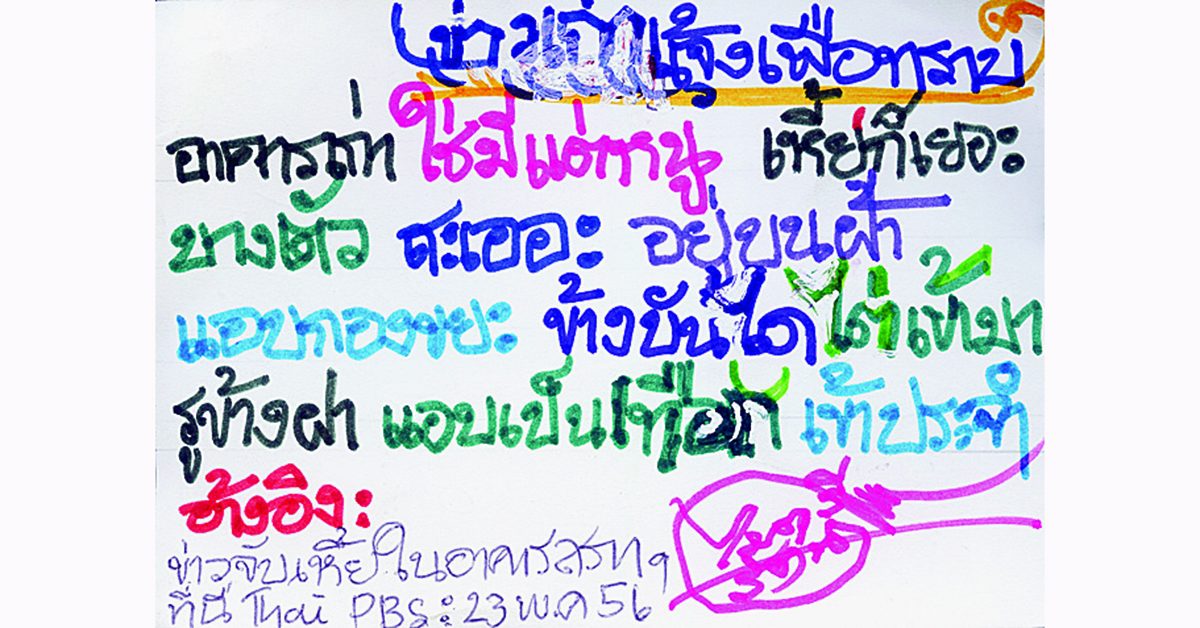 ข่าว แจ้งเพื่อทราบ
อาคารเก่า ใช่มีแต่หนู เหี้ยก็เยอะ
บางตัว สะเออะ อยู่บนฝ้า
แอบกองขยะ ข้างบันได ไต่เข้ามา
รูข้างฝา แอบเป็น เข้าประจำ
อ้างอิง:
ข่าวจับเหี้ยในอาคารสรท ๆ
ที่นี่ Thai PBS: 23 พ.ค 56